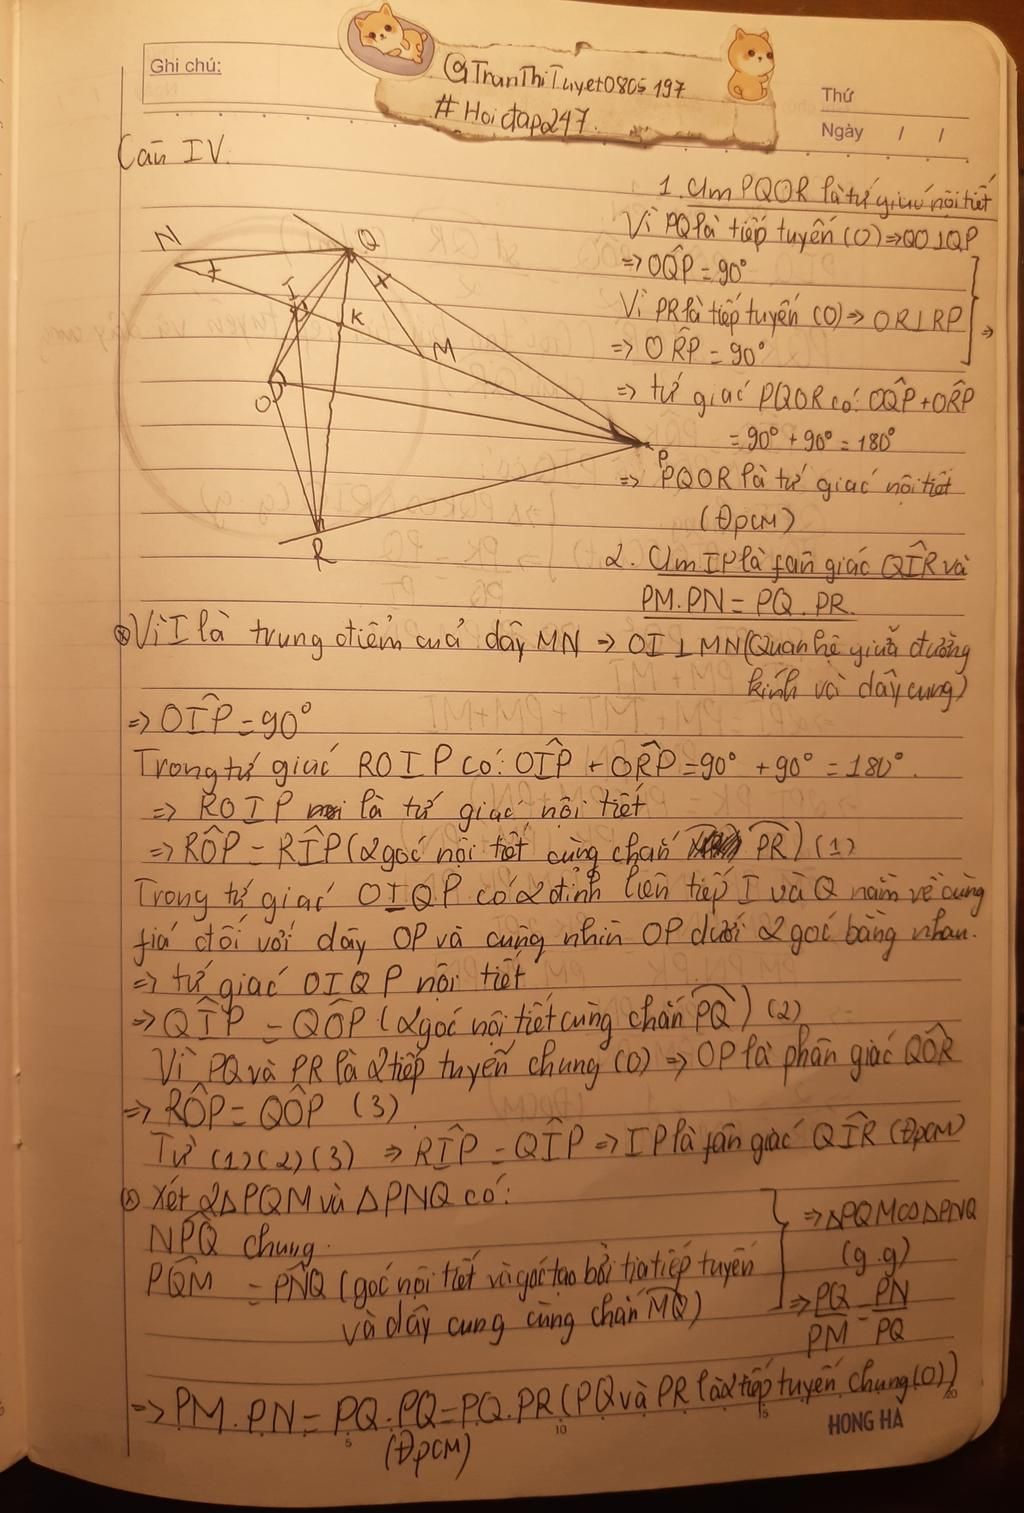 Ghi chú:
@TranThiTuyet0805197
#Hoiđap247.
Thứ
Ngày / /
Câu IV.
1. Cm PQOR là tứ giác nội tiết
Vì PQ là tiếp tuyến (O) => QO⊥QP
=> OQ̂P = 90°
Vì PR là tiếp tuyến (O) => OR⊥RP
=> OR̂P = 90°
=> tứ giác PQOR có: OQ̂P + OR̂P
= 90° + 90° = 180°
=> PQOR là tứ giác nội tiết
(ĐpCM)
N
Q
I
K
M
O
P
R
2. Cm IP là fân giác QÎR và
PM.PN = PQ.PR.
Vì I là trung điểm cuả dây MN => OI⊥MN (Quan hệ giữa đường
kính và dây cung)
=> OÎP = 90°
Trong tứ giác ROIP có: OÎP + OR̂P = 90° + 90° = 180°.
=> ROIP là tứ giác nội tiết
=> RÔP = RÎP (2 góc nội tiết cùng chắn PR) (1)
Trong tứ giác OIQP có 2 đỉnh liên tiếp I và Q nằm về cùng
fiá đối với dây OP và cùng nhìn OP dưới 2 góc bằng nhau.
=> tứ giác OIQP nội tiết
=> QÎP = QÔP (2 góc nội tiết cùng chắn PQ) (2)
Vì PQ và PR là 2 tiếp tuyến chung (O) => OP là phân giác QÔR
=> RÔP = QÔP (3)
Từ (1) (2) (3) => RÎP = QÎP => IP là fân giác QÎR (ĐpCM)
Xét 2Δ PQM và ΔPNQ có:
NP̂Q chung.
PQ̂M = PN̂Q (góc nội tiết và góc tạo bởi tia tiếp tuyến
và dây cung cùng chắn MQ)
=> ΔPQM∽ΔPNQ
(g.g)
=> PQ/PM = PN/PQ
=> PM.PN = PQ.PQ = PQ.PR (PQ và PR là 2 tiếp tuyến chung (O))
(ĐpCM)
5 10 15 20
HONG HA